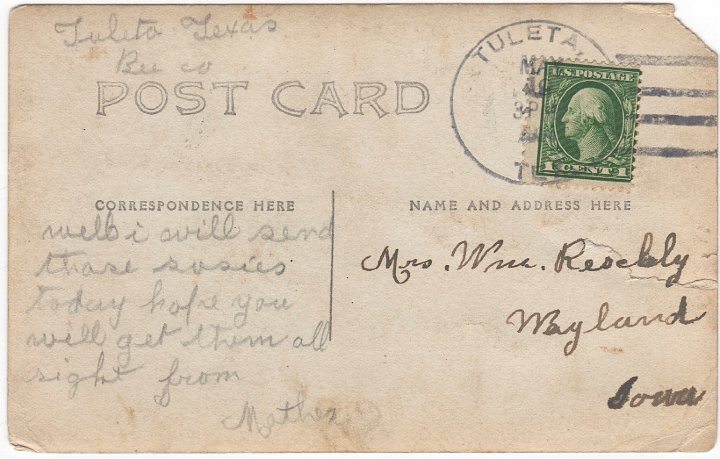 Tuleta Texas
Bee co
POST CARD
TULETA,
MA
3P
TE
U.S. POSTAGE
1 CENT 1
CORRESPONDENCE HERE
well i will send
those
today hope you
will get them all
right from
Mother
NAME AND ADDRESS HERE
Mrs. Wm.
Wayland
Iowa